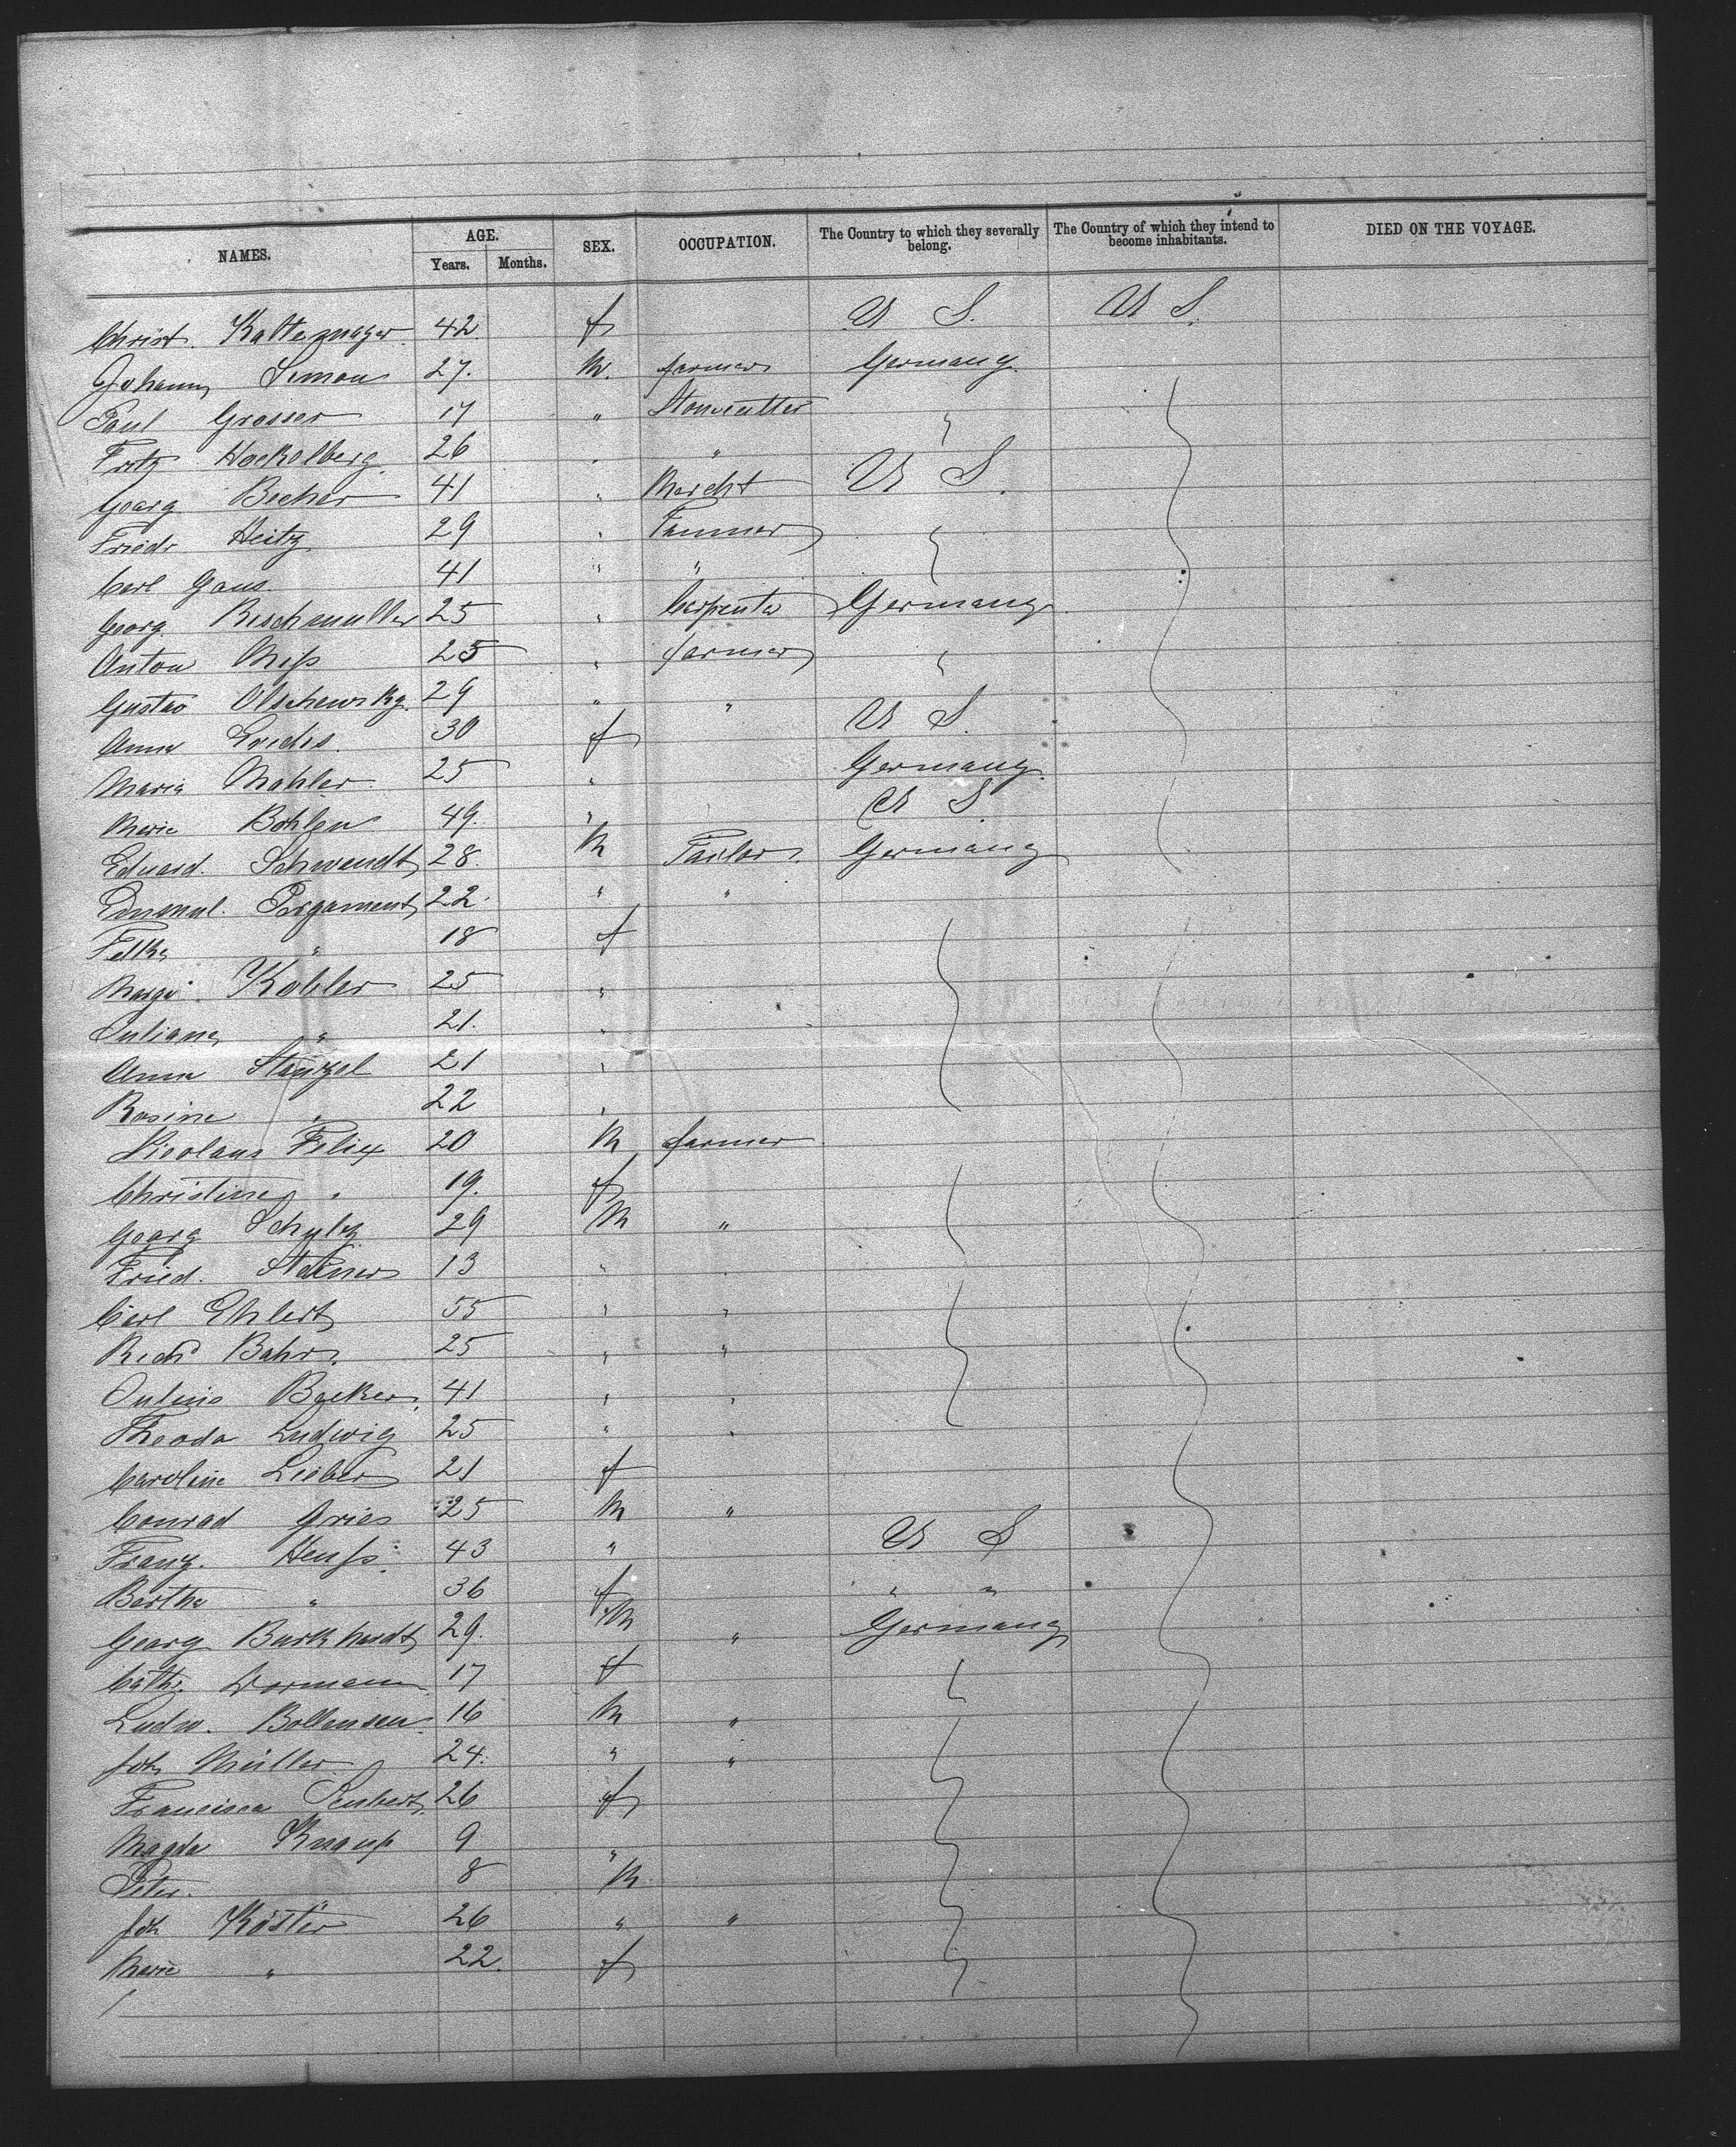 NAMES. AGE. Years. Months. SEX. OCCUPATION. The Country to which they severally belong. The Country of which they intend to become inhabitants. DIED ON THE VOYAGE.
Christ. 42. f U S. U S.
Johann Simon 27. M. farmer Germany
Paul Grosser 17 " Stonecutter "
Fritz Hockelberg. 26 " "
Georg Becher 41 " Mercht U S.
Friedr Heitz 29 " Tanner
Carl Gans. 41 " "
Georg Reschmuller 25 " Carpenter Germany
Anton 25 " farmer
Gustav Olschewsky. 29 " " U S.
Anna 30 f
Maria Mahler. 25 " Germany.
Marie Bohlen 49. " U S.
Eduard. Schwandt 28. M Tailor. Germany
Emanul. Pergament 22. " "
Felka " 18 f
Kobler 25 "
Juliana " 21. "
Anna Stanzel 21 "
Rosine " 22 "
Nicolaus Felix 20 M farmer
Christine " 19. f
Georg Schulz 29 M "
Fried. Steiner 13 " "
Carl Ehlert 55 " "
Richd Bahr. 25 " "
Julius Becker. 41 " "
Theodor Ludwig 25 " "
Caroline Lieber 21 f
Conrad Gries 25 M "
Franz. 43 " U S
Bertha " 36 f " "
Georg Burkhardt 29. M " Germany
Cath. Dormann 17 f
Ludw. Bollensen. 16 M "
Joh Müller. 24. " "
Francisca Seubert. 26 f
Magda Knaup 9 "
Peter. " 8 M
Joh Köster 26 " "
Marie " 22. f